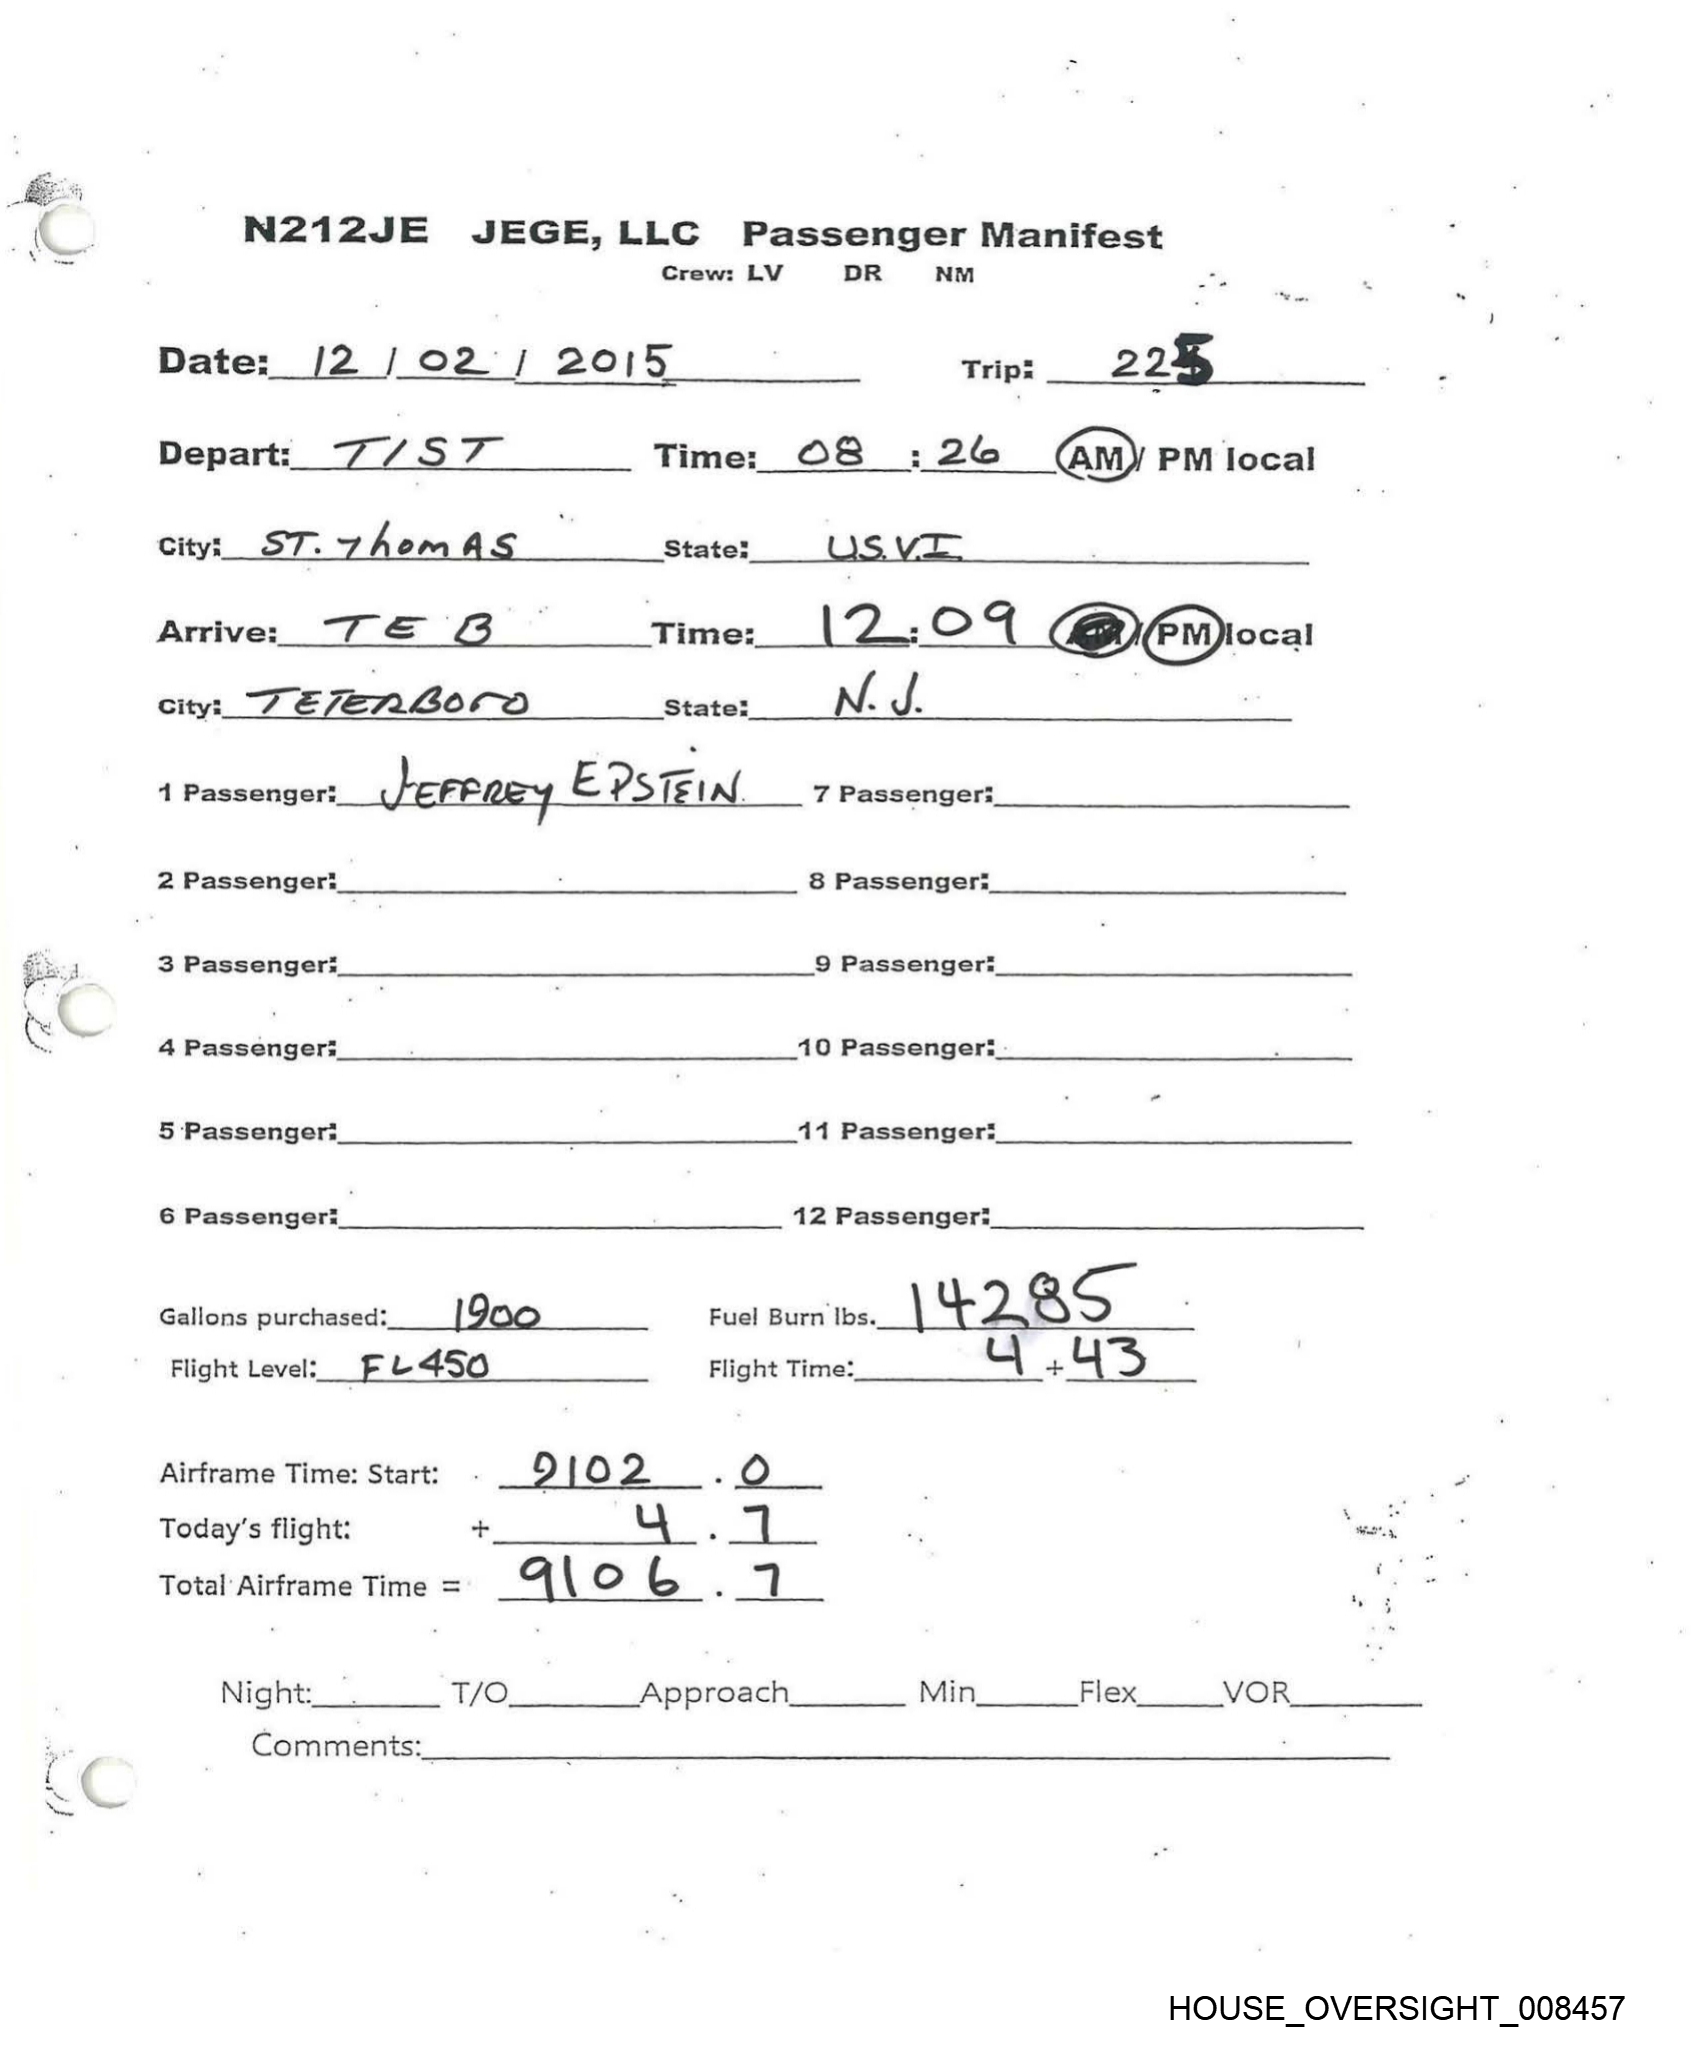 N212JE JEGE, LLC Passenger Manifest
Crew: LV DR NM
Date: 12 / 02 / 2015 Trip: 225
Depart: TIST Time: 08 : 26 AM / PM local
City: ST. ThomAS State: U.S.V.I
Arrive: TEB Time: 12:09 / PM local
City: TETERBORO State: N.J.
1 Passenger: JEFFREY EPSTEIN 7 Passenger:
2 Passenger: 8 Passenger:
3 Passenger: 9 Passenger:
4 Passenger: 10 Passenger:
5 Passenger: 11 Passenger:
6 Passenger: 12 Passenger:
Gallons purchased: 1900 Fuel Burn lbs. 14285
Flight Level: FL450 Flight Time: 4 + 43
Airframe Time: Start: 9102 . 0
Today's flight: + 4 . 7
Total Airframe Time = 9106 . 7
Night: T/O Approach Min Flex VOR
Comments:
HOUSE_OVERSIGHT_008457